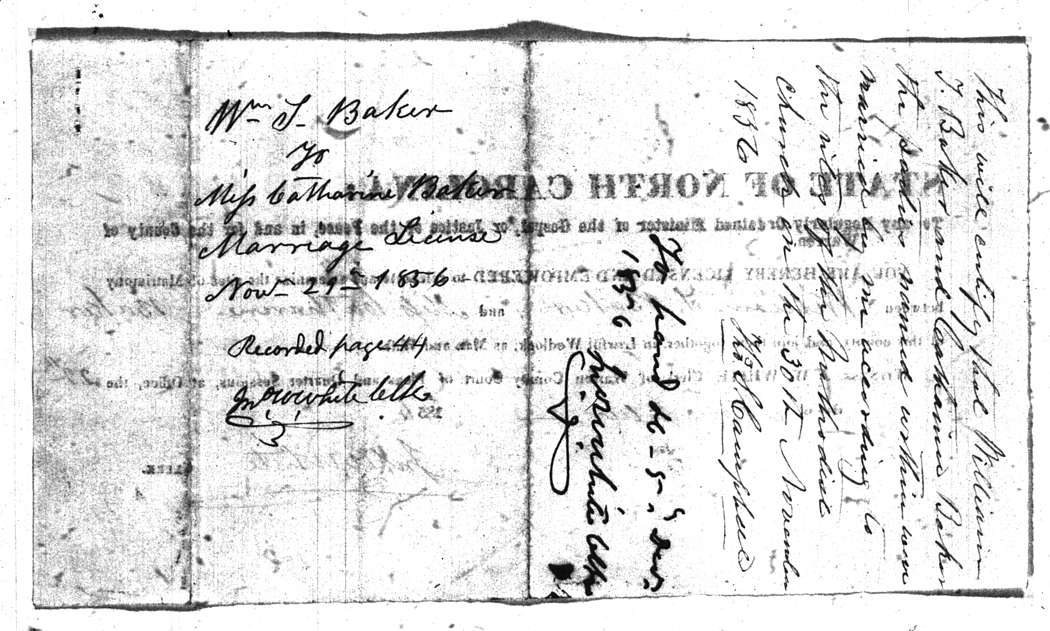 Wm T. Baker
To
Miss Catharine Baker
Marriage License
Nov 29th 1856
Recorded page 44
Jno W White Clk
To hand Dec 5th
1856
Jno W White Clk
This will certify that William
T. Baker and Catharine Baker
the parties named within were
married by me according to
the rites of the Methodist
Church on the 30th November
1856
STATE OF NORTH CAROLINA
To any Regularly Ordained Minister of the Gospel, or Justice of the Peace, in and for the County of
Warren,
YOU ARE HEREBY LICENSED AND EMPOWERED to celebrate the rites of Matrimony
between
and Miss Catharine Baker
of the county, and join them together in Lawful Wedlock, as Man and Wife.
WHITE, Clerk of Warren County Court of Pleas and Quarter Sessions, at Office, the 29th
185
CLERK.